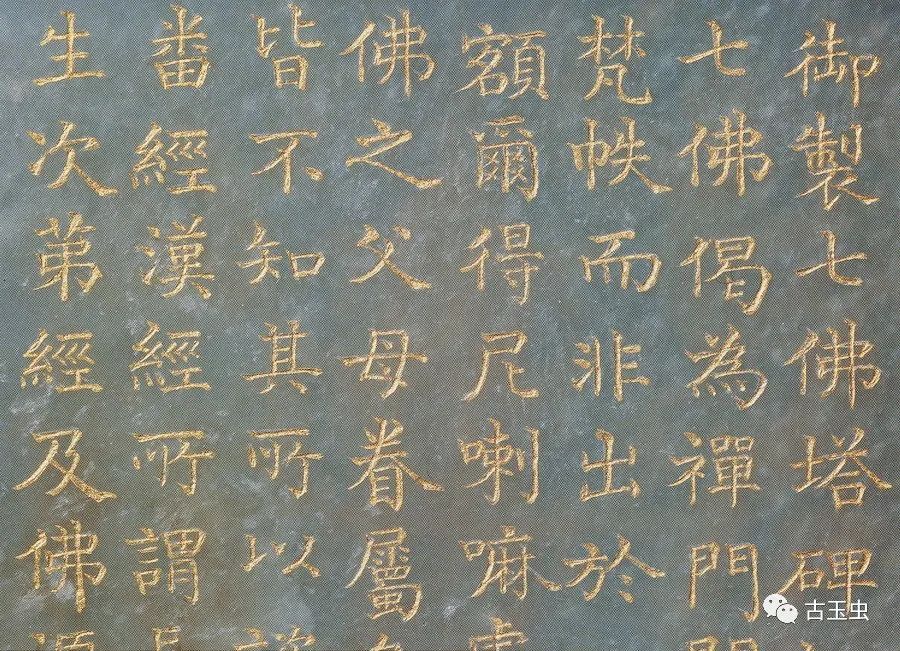 御製七佛塔碑
七佛偈為禪門
梵帙而非出於
額爾得尼喇嘛
佛之父母眷屬
皆不知其所以
番經漢經所謂
生次苐經及佛
古玉虫